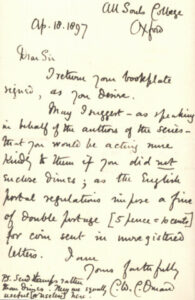 All Souls College
Oxford
Ap. 18. 1897
Dear Sir
I return your bookplate
signed, as you desire.
May I suggest - as speaking
in behalf of the authors of the series -
that you would be acting more
kindly to them if you did not
enclose dimes; as the English
postal regulations impose a fine
of double postage [5 pence = 10 cents]
for coin sent in unregistered
letters.
I am
Yours faithfully
C. W. C. Oman
Send stamps rather
than dimes. They are equally
useful (or useless) here.